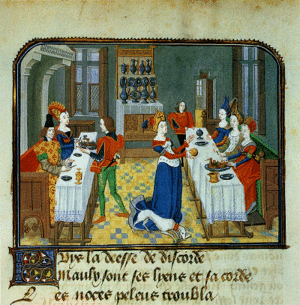 Fuys la deesse de discorde
Mauls sont ses lyens et sa corde
Les noces peleus troubla